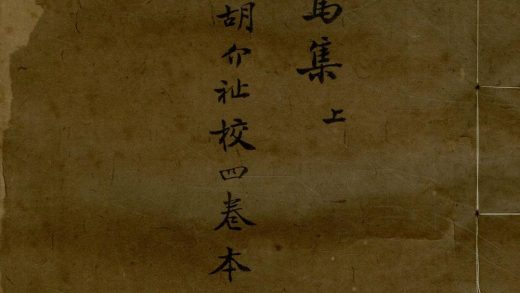 集 上
胡介祉校四卷本